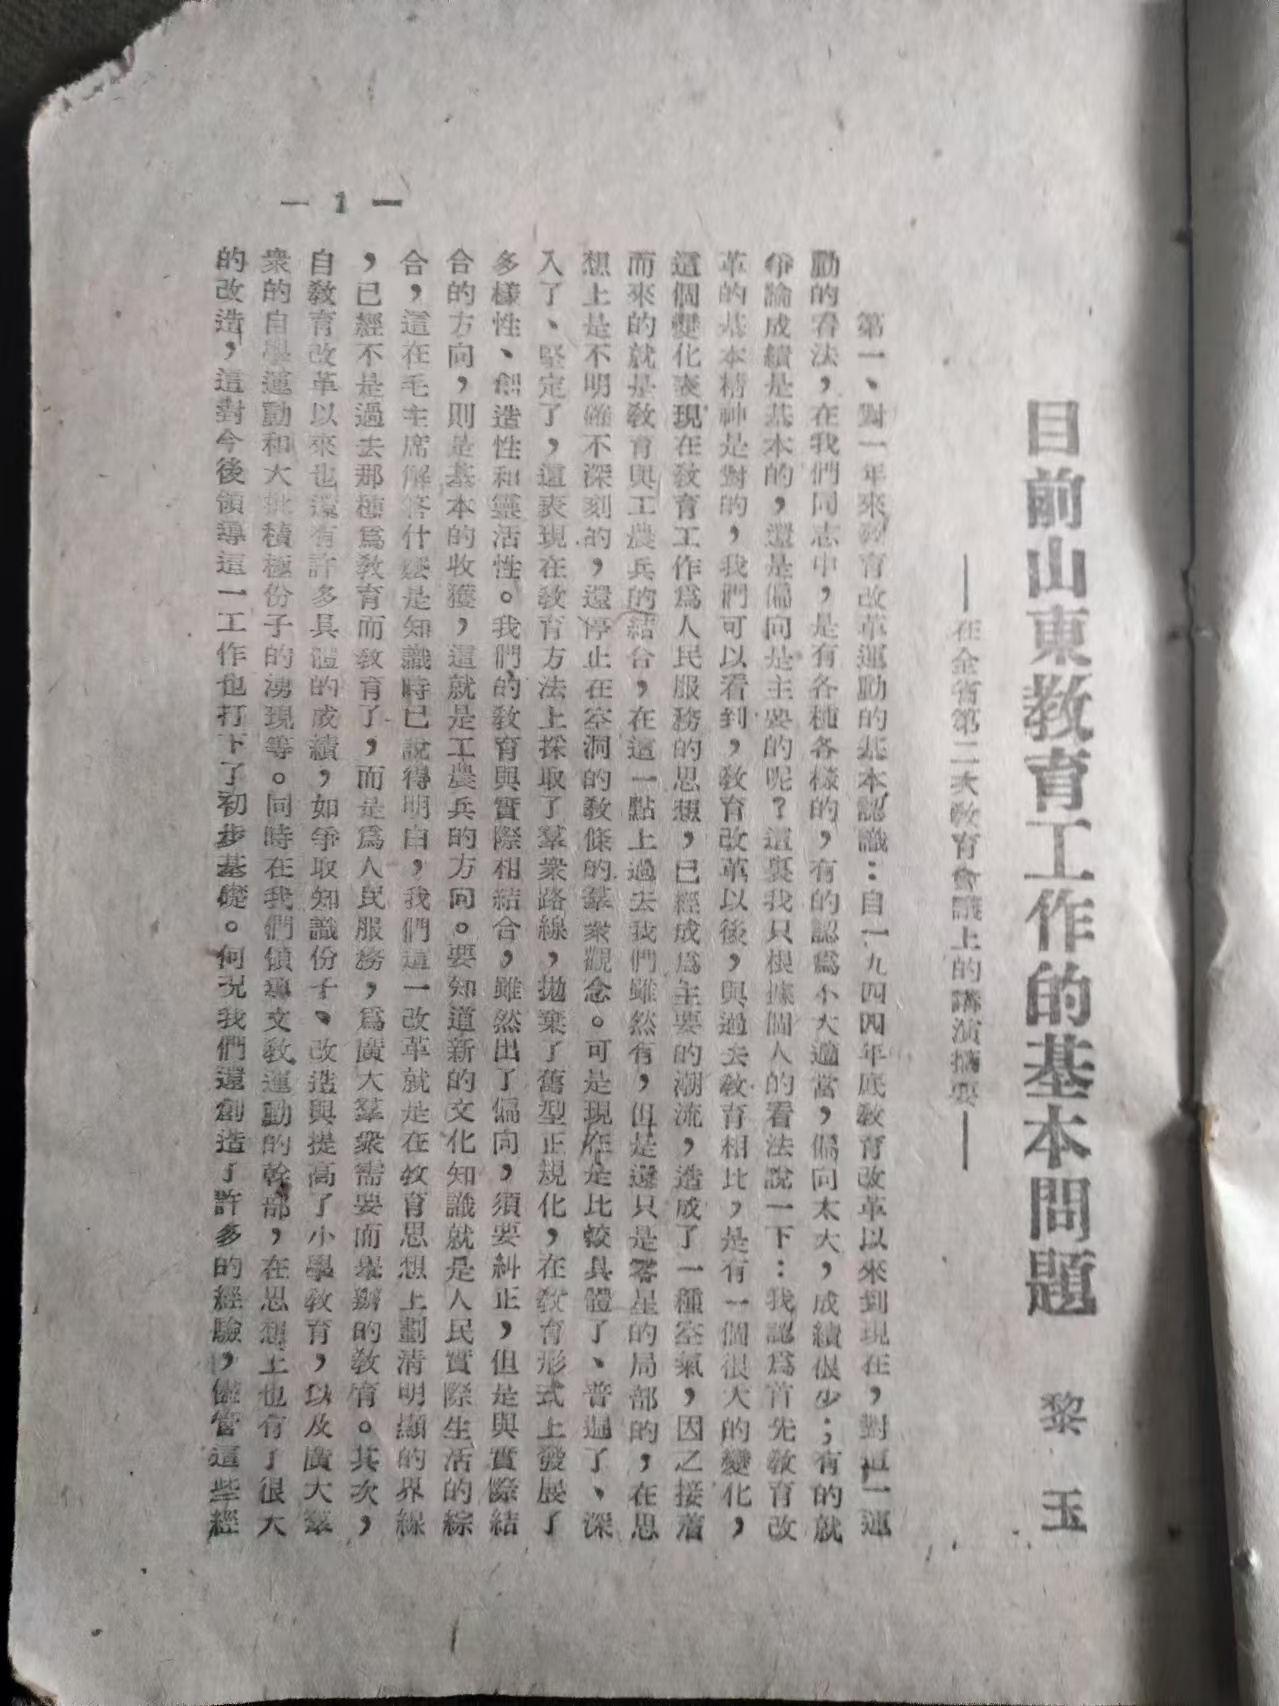 目前山東教育工作的基本問題
黎玉
——在全省第二次教育會議上的講演摘要——
第一、對一年來教育改革運動的基本認識：自一九四四年底教育改革以來到現在，對這一運
動的看法，在我們同志中，是有各種各樣的，有的認爲不大適當，偏向太大，成績很少；有的就
爭論成績是基本的，還是偏向是主要的呢？這裏我只根據個人的看法說一下：我認爲首先教育改
革的基本精神是對的，我們可以看到，教育改革以後，與過去教育相比，是有一個很大的變化，
這個變化表現在教育工作爲人民服務的思想，已經成爲主要的潮流，造成了一種空氣，因之接着
而來的就是教育與工農兵的結合，在這一點上過去我們雖然有，但是還只是零星的局部的，在思
想上是不明確不深刻的，還停止在空洞的教條的羣衆觀念。可是現在是比較具體了、普遍了、深
入了、堅定了，這表現在教育方法上採取了羣衆路線，拋棄了舊型正規化，在教育形式上發展了
多樣性、創造性和靈活性。我們的教育與實際相結合，雖然出了偏向，須要糾正，但是與實際結
合的方向，則是基本的收獲，這就是工農兵的方向。要知道新的文化知識就是人民實際生活的綜
合，這在毛主席解答什麼是知識時已說得明白，我們這一改革就是在教育思想上劃清明顯的界線
，已經不是過去那種爲教育而教育了，而是爲人民服務，爲廣大羣衆需要而舉辦的教育。其次，
自教育改革以來也還有許多具體的成績，如爭取知識份子、改造與提高了小學教育，以及廣大羣
衆的自學運動和大批積極份子的湧現等。同時在我們領導文教運動的幹部，在思想上也有了很大
的改造，這對今後領導這一工作也打下了初步基礎。何況我們還創造了許多的經驗，儘管這些經
— 1 —